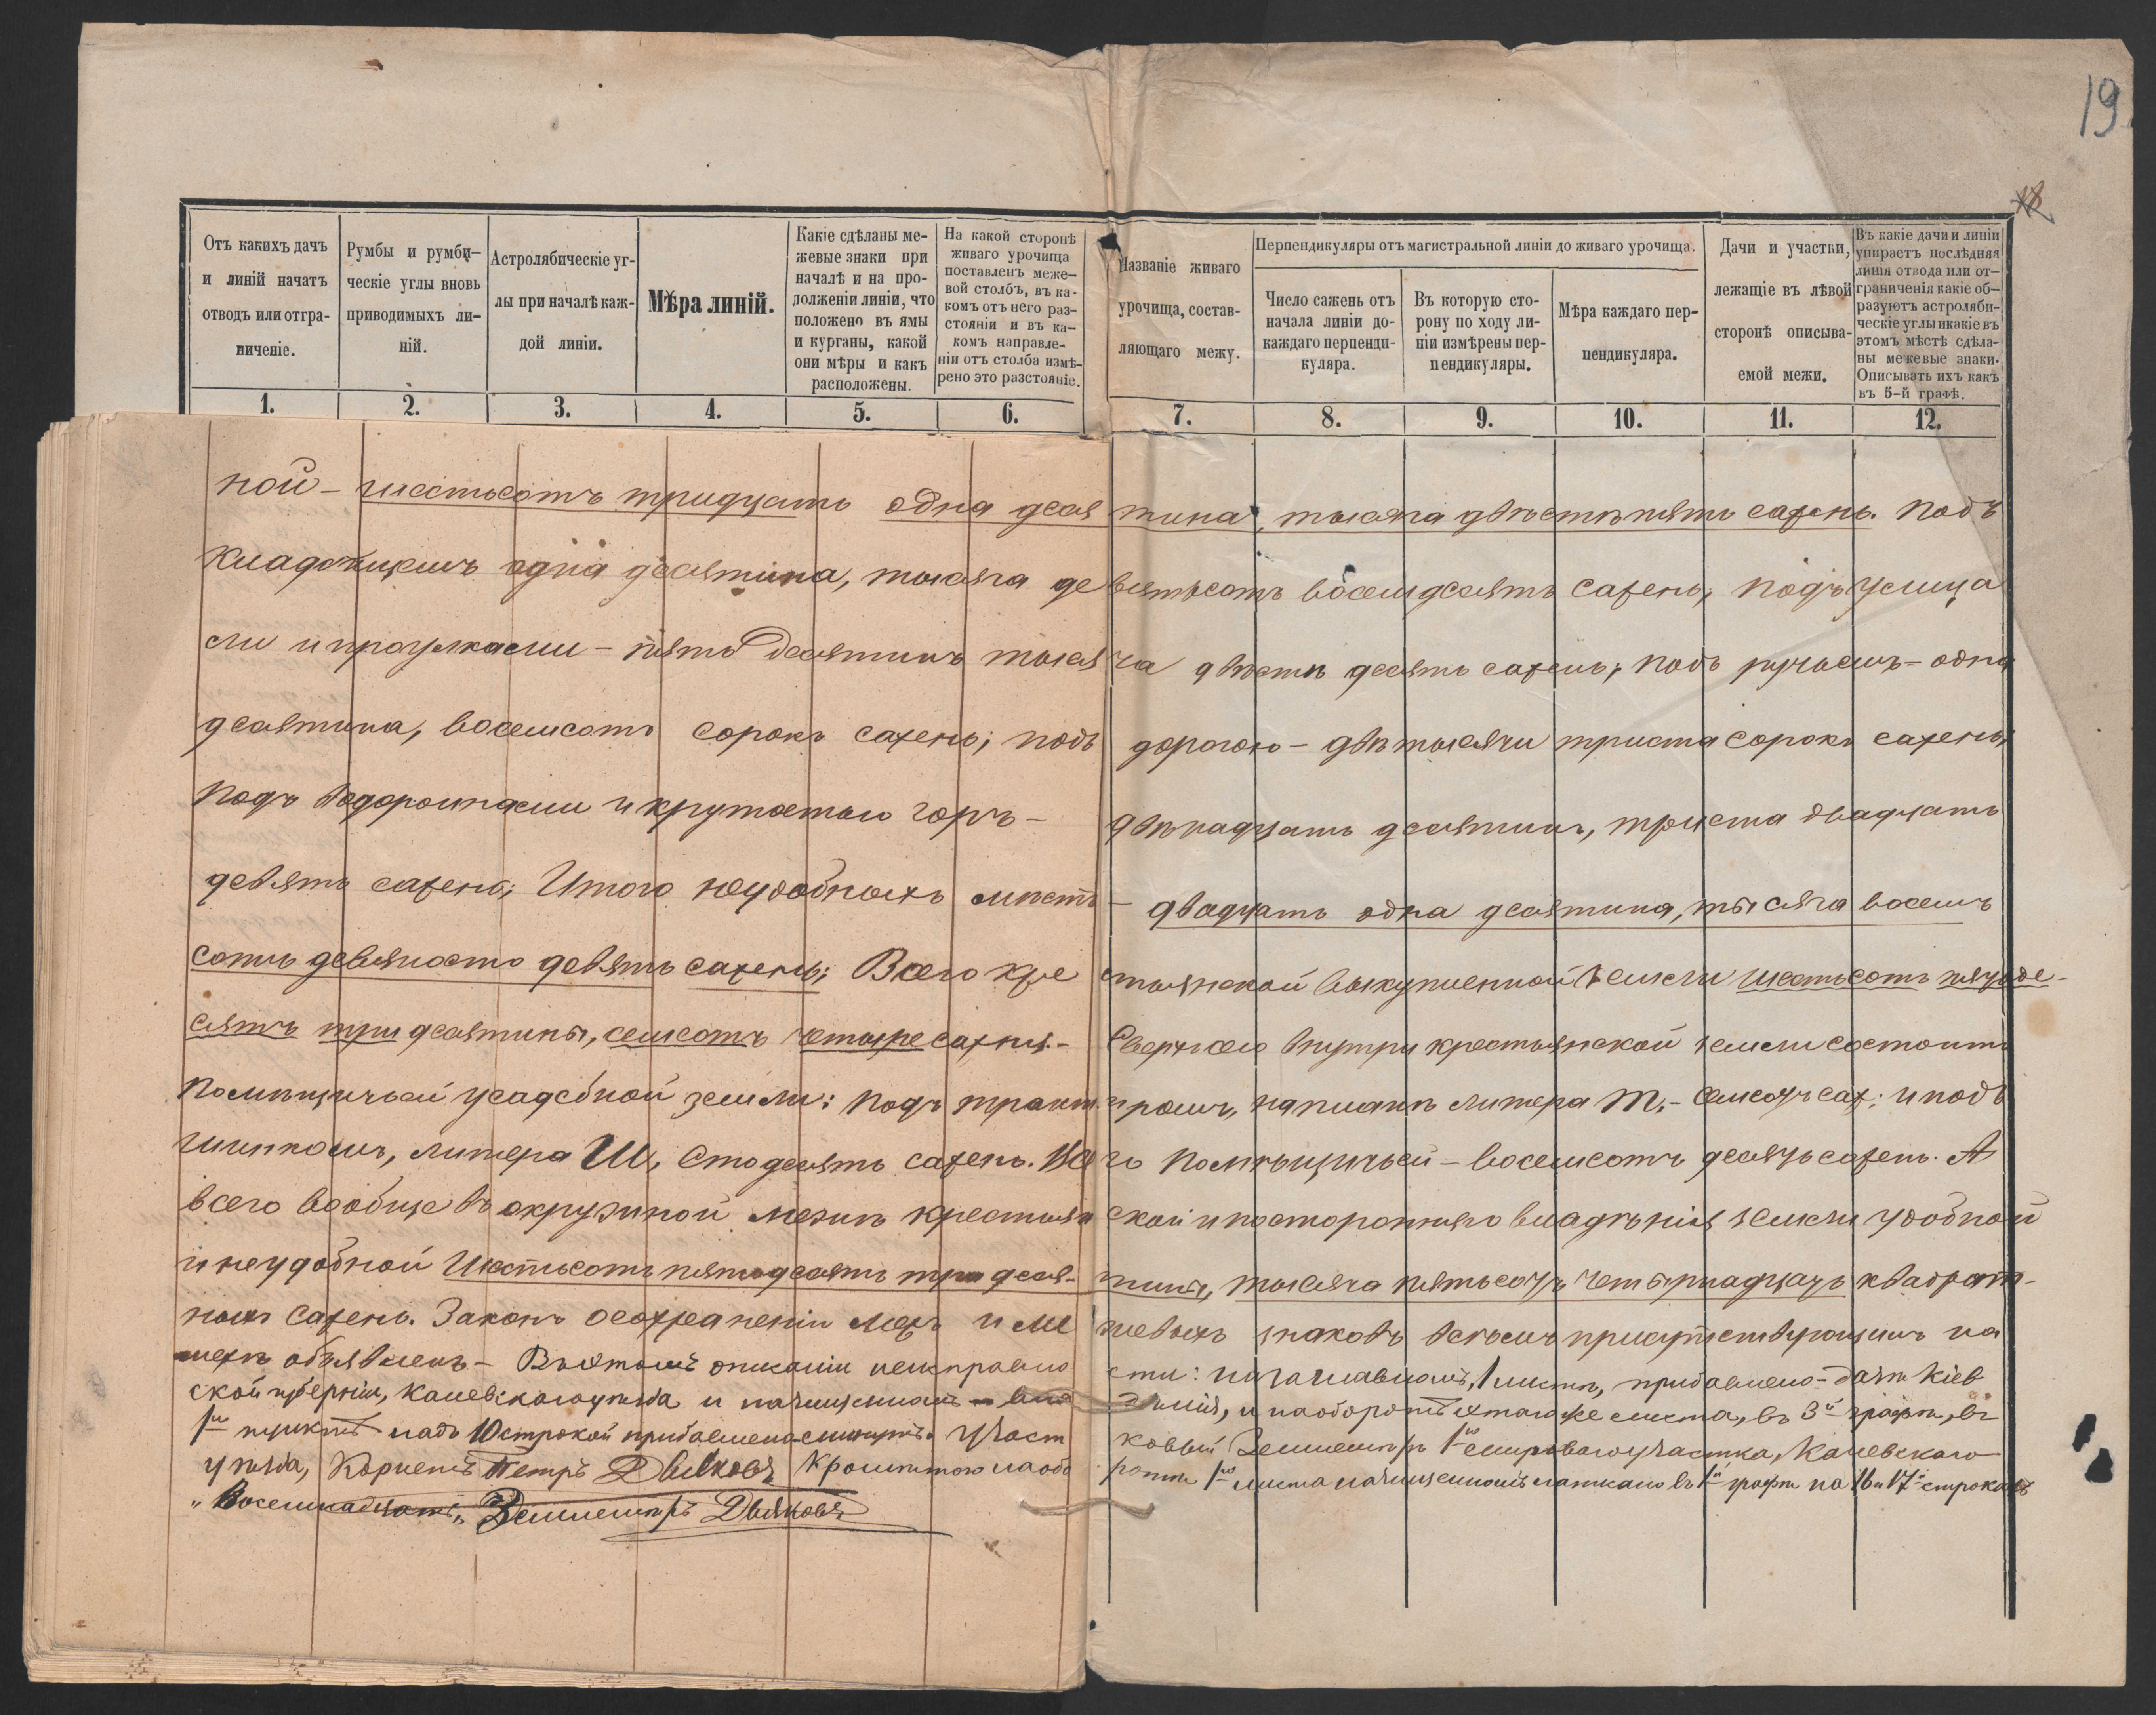 19.
18
Отъ какихъ дачъ и линій начатъ отводъ или отграниченіе.
Румбы и румбическіе углы вновь приводимыхъ линій.
Астролябическіе углы при началѣ каждой линіи.
Мѣра линій.
Какіе сдѣланы межевые знаки при началѣ и на продолженіи линіи, что положено въ ямы и курганы, какой они мѣры и какъ расположены.
На какой сторонѣ живаго урочища поставленъ межевой столбъ, въ какомъ отъ него разстояніи и въ какомъ направленіи отъ столба измѣрено это разстояніе.
Названіе живаго урочища, составляющаго межу.
Перпендикуляры отъ магистральной линіи до живаго урочища.
Число сажень отъ начала линіи до каждаго перпендикуляра.
Въ которую сторону по ходу линіи измѣрены перпендикуляры.
Мѣра каждаго перпендикуляра.
Дачи и участки, лежащіе въ лѣвой сторонѣ описываемой межи.
Въ какіе дачи и линіи упираетъ послѣдняя линія отвода или отграниченія какіе образуютъ астролябическіе углы и какіе въ этомъ мѣстѣ сдѣланы межевые знаки. Описывать ихъ какъ въ 5-й графѣ.
1. 2. 3. 4. 5. 6. 7. 8. 9. 10. 11. 12.
ной – шестьсотъ тридцать одна десятина, тысяча двѣсти пять сажень. Подъ
кладбищемъ одна десятина, тысяча девятьсотъ восемдесятъ сажень; подъ улица
ми и проулками – пять десятинъ тысяча двѣсти десять сажень; подъ ручьемъ – одна
десятина, восемсотъ сорокъ сажень; подъ дорогою – двѣ тысячи триста сорокъ сажень;
Подъ водороинами и крутостью горъ – двѣнадцать десятинъ, триста двадцать
девять сажень; Итого неудобныхъ мѣстъ – двадцать одна десятина, тысяча восемъ
сотъ девяносто девять сажень; Всего крестьянской выкупленной земли шестьсотъ пятьде-
сятъ три десятины, семсотъ четыре сажня. – Сверхъ сего внутри крестьянской земли состоитъ
Помѣщичьей усадебной земли: подъ трактиромъ, на планѣ литера Т, – семсотъ саж; и подъ
шинкомъ, литера Ш, сто десять сажень. Всего Помѣщичьей – восемсотъ десять сажень. А
всего вообще въ окружной межѣ крестьянской и посторонняго владѣнія земли удобной
и неудобной шестьсотъ пятьдесятъ три десятины, тысяча пятьсотъ четырнадцать квадрат-
ныхъ сажень. Законъ о сохраненіи межъ и межевыхъ знаковъ всѣмъ присутствующимъ на
межѣ объявленъ – Въ этомъ описаніи неисправности: на заглавномъ 1 листѣ, прибавлено – дачѣ Кіев
ской губерніи, Каневскаго уѣзда и на чищенномъ – владѣнія, и на оборотѣ этого же листа, въ 3й графѣ, въ
1мъ пунктѣ надъ 10 строкой прибавлена минутъ. Участковый Землемѣръ 1го мироваго участка, Каневскаго
уѣзда, Корнетъ Петръ Дьяковъ Кромѣ того на оборотѣ 1го листа на чищенномъ написано въ 1й графѣ на 16 и 17й строкахъ
„Восемнадцать„ Землемѣръ Дьяковъ